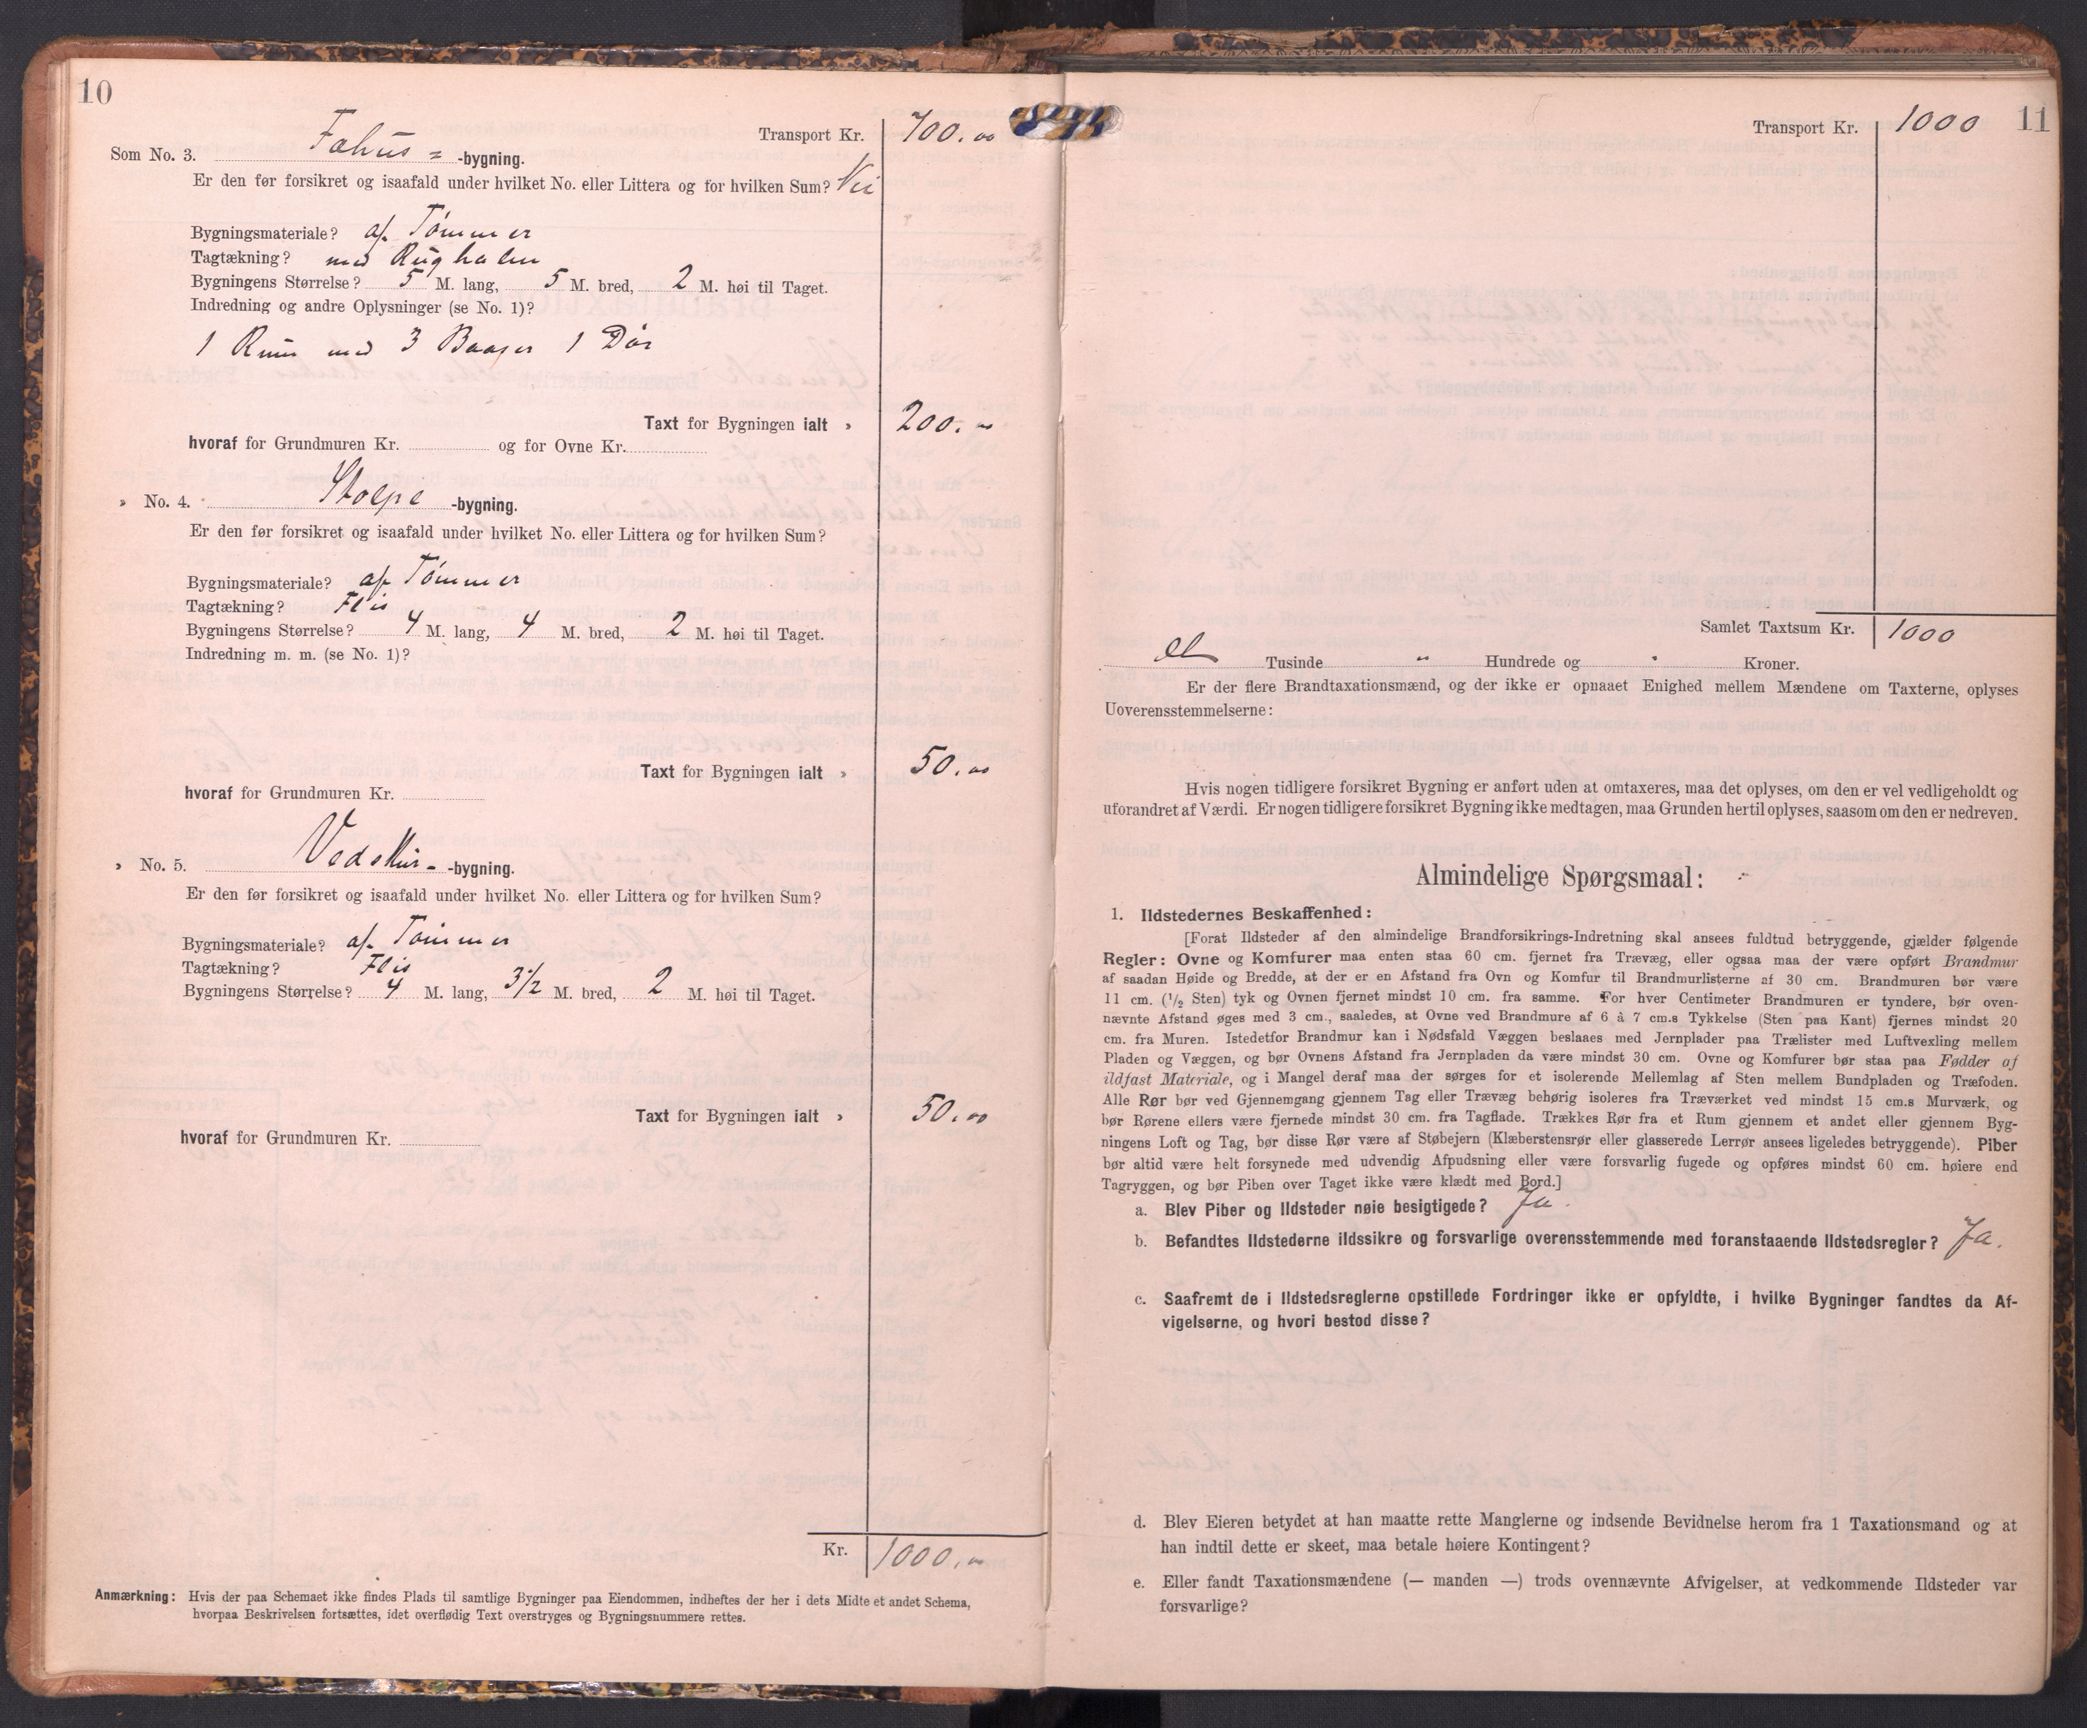 10
Transport Kr. 700.00
Som No. 3. Fæhus = -bygning.
Er den før forsikret og isaafald under hvilket No. eller Littera og for hvilken Sum? Nei
Bygningsmateriale? af Tømmer
Tagtækning? med Rughalm
Bygningens Størrelse? 5 M. lang, 5 M. bred, 2 M. høi til Taget.
Indredning og andre Oplysninger (se No. 1)?
1 Rum med 3 Baaser 1 Dør
Taxt for Bygningen ialt » 200.00
hvoraf for Grundmuren Kr. og for Ovne Kr.
» No. 4. Stolpe -bygning.
Er den før forsikret og isaafald under hvilket No. eller Littera og for hvilken Sum?
Bygningsmateriale? af Tømmer
Tagtækning? Flis
Bygningens Størrelse? 4 M. lang, 4 M. bred, 2 M. høi til Taget.
Indredning m. m. (se No. 1)?
Taxt for Bygningen ialt » 50.00
hvoraf for Grundmuren Kr.
» No. 5. Vedskur- -bygning.
Er den før forsikret og isaafald under hvilket No. eller Littera og for hvilken Sum?
Bygningsmateriale? af Tømmer
Tagtækning? Flis
Bygningens Størrelse? 4 M. lang, 3 1/2 M. bred, 2 M. høi til Taget.
Taxt for Bygningen ialt » 50.00
hvoraf for Grundmuren Kr.
Kr. 1000.00
Anmærkning: Hvis der paa Schemaet ikke findes Plads til samtlige Bygninger paa Eiendommen, indheftes der her i dets Midte et andet Schema,
hvorpaa Beskrivelsen fortsættes, idet overflødig Text overstryges og Bygningsnummere rettes.
11
Transport Kr. 1000
Samlet Taxtsum Kr. 1000
et Tusinde " Hundrede og " Kroner.
Er der flere Brandtaxationsmænd, og der ikke er opnaaet Enighed mellem Mændene om Taxterne, oplyses
Uoverensstemmelserne:
Hvis nogen tidligere forsikret Bygning er anført uden at omtaxeres, maa det oplyses, om den er vel vedligeholdt og
uforandret af Værdi. Er nogen tidligere forsikret Bygning ikke medtagen, maa Grunden hertil oplyses, saasom om den er nedreven.
Almindelige Spørgsmaal:
1. Ildstedernes Beskaffenhed:
[Forat Ildsteder af den almindelige Brandforsikrings-Indretning skal ansees fuldtud betryggende, gjælder følgende
Regler: Ovne og Komfurer maa enten staa 60 cm. fjernet fra Trævæg, eller ogsaa maa der være opført Brandmur
af saadan Høide og Bredde, at der er en Afstand fra Ovn og Komfur til Brandmurlisterne af 30 cm. Brandmuren bør være
11 cm. (1/2 Sten) tyk og Ovnen fjernet mindst 10 cm. fra samme. For hver Centimeter Brandmuren er tyndere, bør oven-
nævnte Afstand øges med 3 cm., saaledes, at Ovne ved Brandmure af 6 à 7 cm.s Tykkelse (Sten paa Kant) fjernes mindst 20
cm. fra Muren. Istedetfor Brandmur kan i Nødsfald Væggen beslaaes med Jernplader paa Trælister med Luftvexling mellem
Pladen og Væggen, og bør Ovnens Afstand fra Jernpladen da være mindst 30 cm. Ovne og Komfurer bør staa paa Fødder af
ildfast Materiale, og i Mangel deraf maa der sørges for et isolerende Mellemlag af Sten mellem Bundpladen og Træfoden.
Alle Rør bør ved Gjennemgang gjennem Tag eller Trævæg behørig isoleres fra Træværket ved mindst 15 cm.s Murværk, og
bør Rørene ellers være fjernede mindst 30 cm. fra Tagflade. Trækkes Rør fra et Rum gjennem et andet eller gjennem Byg-
ningens Loft og Tag, bør disse Rør være af Støbejern (Klæberstensrør eller glasserede Lerrør ansees ligeledes betryggende). Piber
bør altid være helt forsynede med udvendig Afpudsning eller være forsvarlig fugede og opføres mindst 60 cm. høiere end
Tagryggen, og bør Piben over Taget ikke være klædt med Bord.]
a. Blev Piber og Ildsteder nøie besigtigede? Ja.
b. Befandtes Ildstederne ildssikre og forsvarlige overensstemmende med foranstaaende Ildstedsregler? Ja.
c. Saafremt de i Ildstedsreglerne opstillede Fordringer ikke er opfyldte, i hvilke Bygninger fandtes da Af-
vigelserne, og hvori bestod disse?
d. Blev Eieren betydet at han maatte rette Manglerne og indsende Bevidnelse herom fra 1 Taxationsmand og at
han indtil dette er skeet, maa betale høiere Kontingent?
e. Eller fandt Taxationsmændene (— manden —) trods ovennævnte Afvigelser, at vedkommende Ildsteder var
forsvarlige?